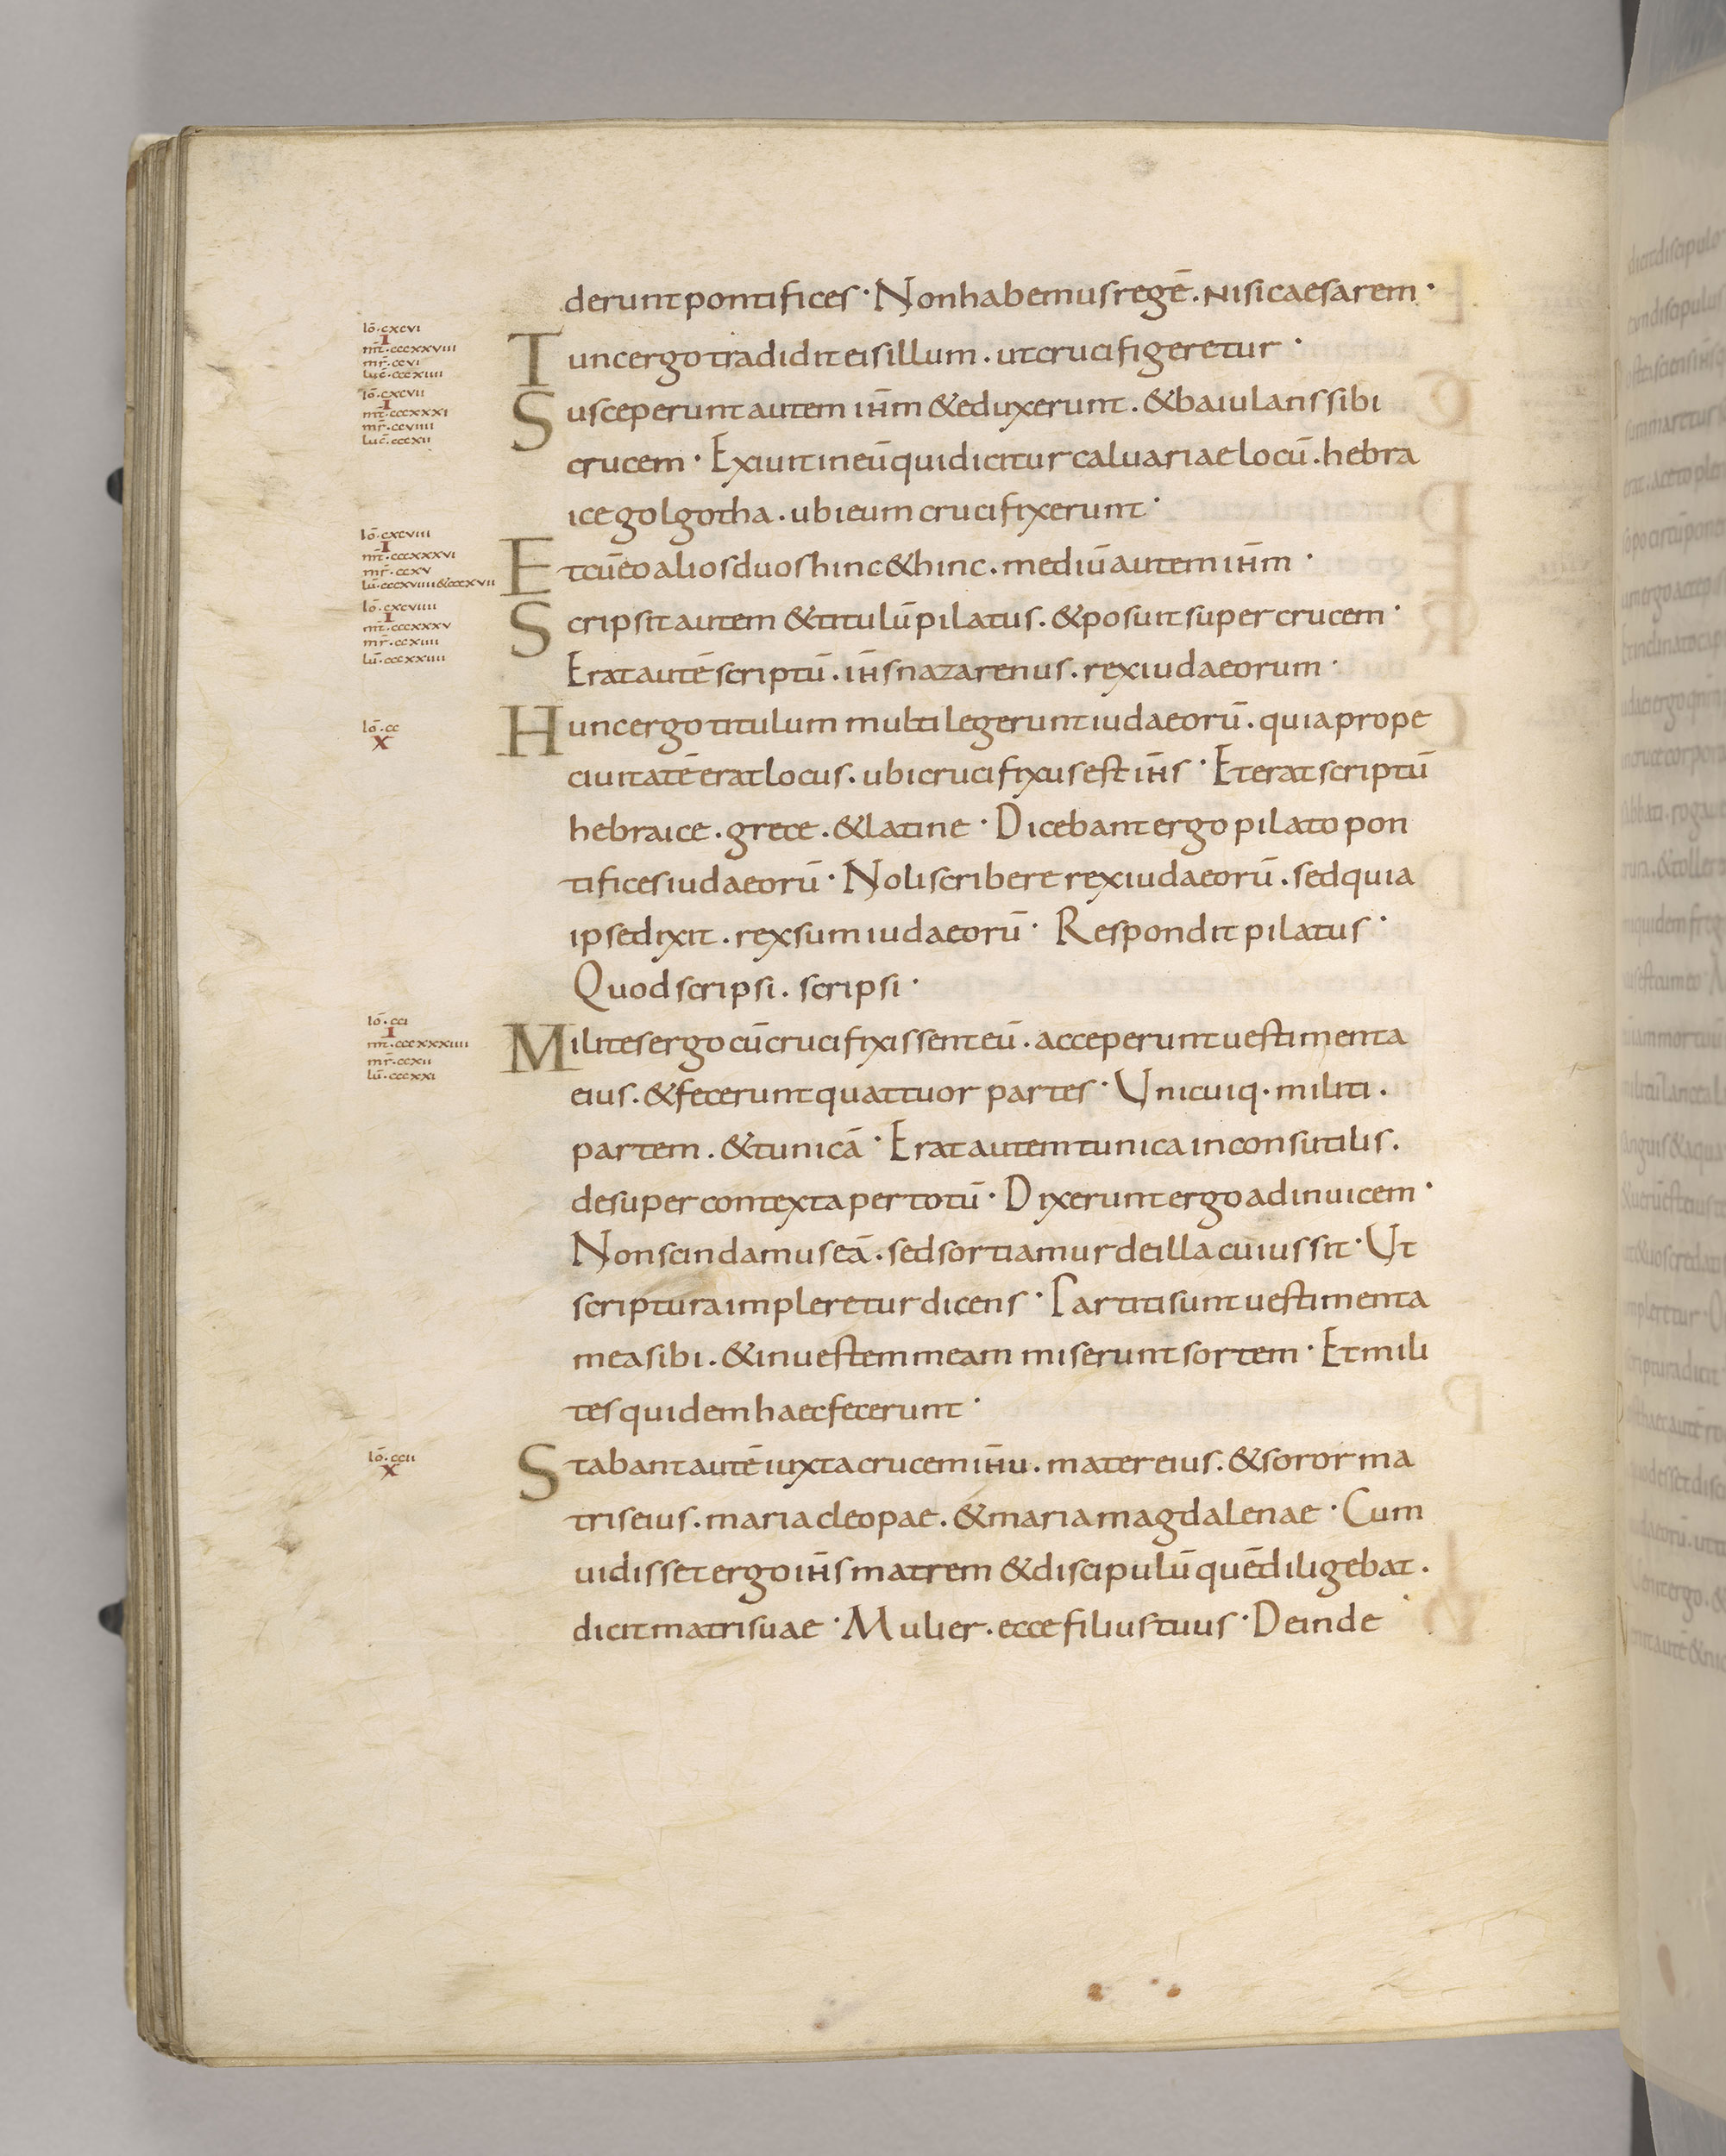 derunt pontifices · Non habemus regē . nisi caesarem ·
iō · cxcvi
I
mt̄ · cccxxviii
mr̄ · ccvi
luc̄ · cccxiiii
Tunc ergo tradidit eis illum . ut crucifigeretur ·
iō · cxcvii
I
mt̄ · cccxxxi
mr̄ · ccviiii
luc̄ · cccxii
Susceperunt autem ih̄m & eduxerunt . & baiulans sibi
crucem · Exiuit in eū qui dicitur caluariae locū . hebra
ice golgotha . ubi eum crucifixerunt ·
iō · cxcviii
I
mt̄ · cccxxxvi
mr̄ · ccxv
lū · cccxviiii & cccxvii
Et cū eo alios duos hinc & hinc . mediū autem ih̄m ·
iō · cxcviiii
I
mt̄ · cccxxxv
mr̄ · ccxiiii
lū · cccxxiiii
Scripsit autem & titulū pilatus . & posuit super crucem ·
Erat autē scriptū . ih̄s nazarenus . rex iudaeorum ·
iō · cc
X
Hunc ergo titulum multi legerunt iudaeorū . quia prope
ciuitatē erat locus . ubi crucifixus est ih̄s · Et erat scriptū
hebraice . grece . & latine · Dicebant ergo pilato pon
tifices iudaeorū · Noli scribere rex iudaeorū . sed quia
ipse dixit . rex sum iudaeorū · Respondit pilatus ·
Quod scripsi . scripsi ·
iō · cci
I
mt̄ · cccxxxiiii
mr̄ · ccxii
lū · cccxxi
Milites ergo cū crucifixissent eū . acceperunt uestimenta
eius . & fecerunt quattuor partes · Unicuiq · militi .
partem . & tunicā · Erat autem tunica inconsutilis .
desuper contexta per totū · Dixerunt ergo ad inuicem ·
Non scindamus eā . sed sortiamur de illa cuius sit · Ut
scriptura impleretur dicens · Partiti sunt uestimenta
mea sibi . & in uestem meam miserunt sortem · Et mili
tes quidem haec fecerunt ·
iō · ccii
X
Stabant autē iuxta crucem ih̄u . mater eius . & soror ma
tris eius . maria cleopae . & maria magdalenae · Cum
uidisset ergo ih̄s matrem & discipulū quē diligebat .
dicit matri suae · Mulier . ecce filius tuus · Deinde